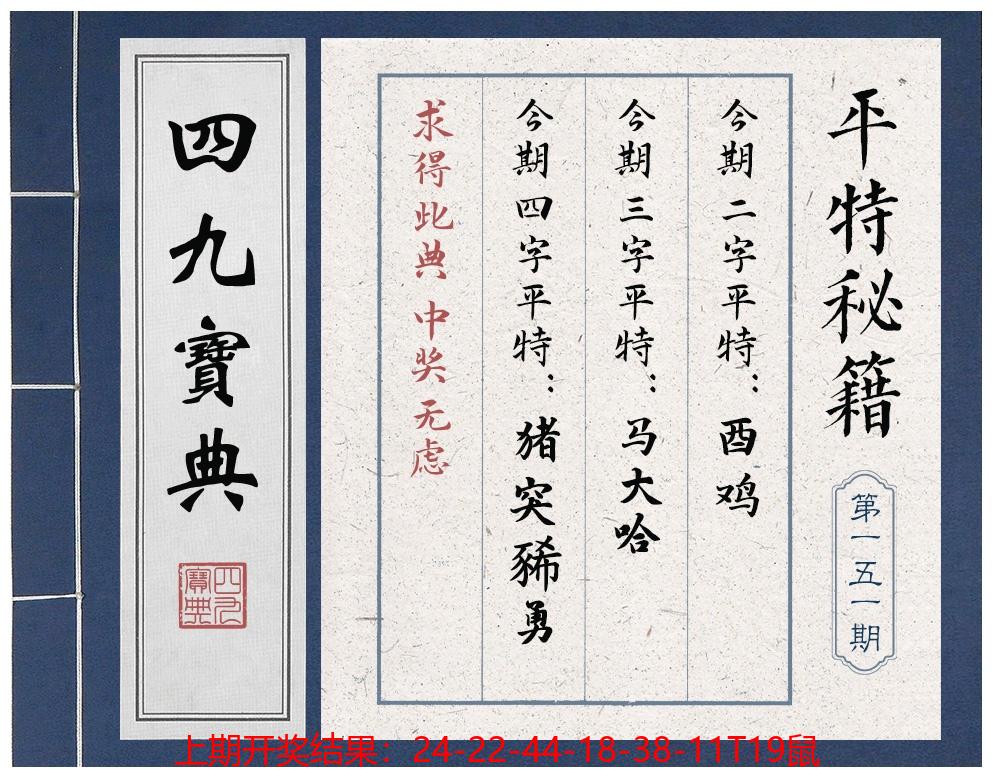 平特秘籍
第一五一期
今期二字平特：酉鸡
今期三字平特：马大哈
今期四字平特：猪突豨勇
求得此典 中奖无虑
四九寶典
四九寶典
上期开奖结果：24-22-44-18-38-11T19鼠